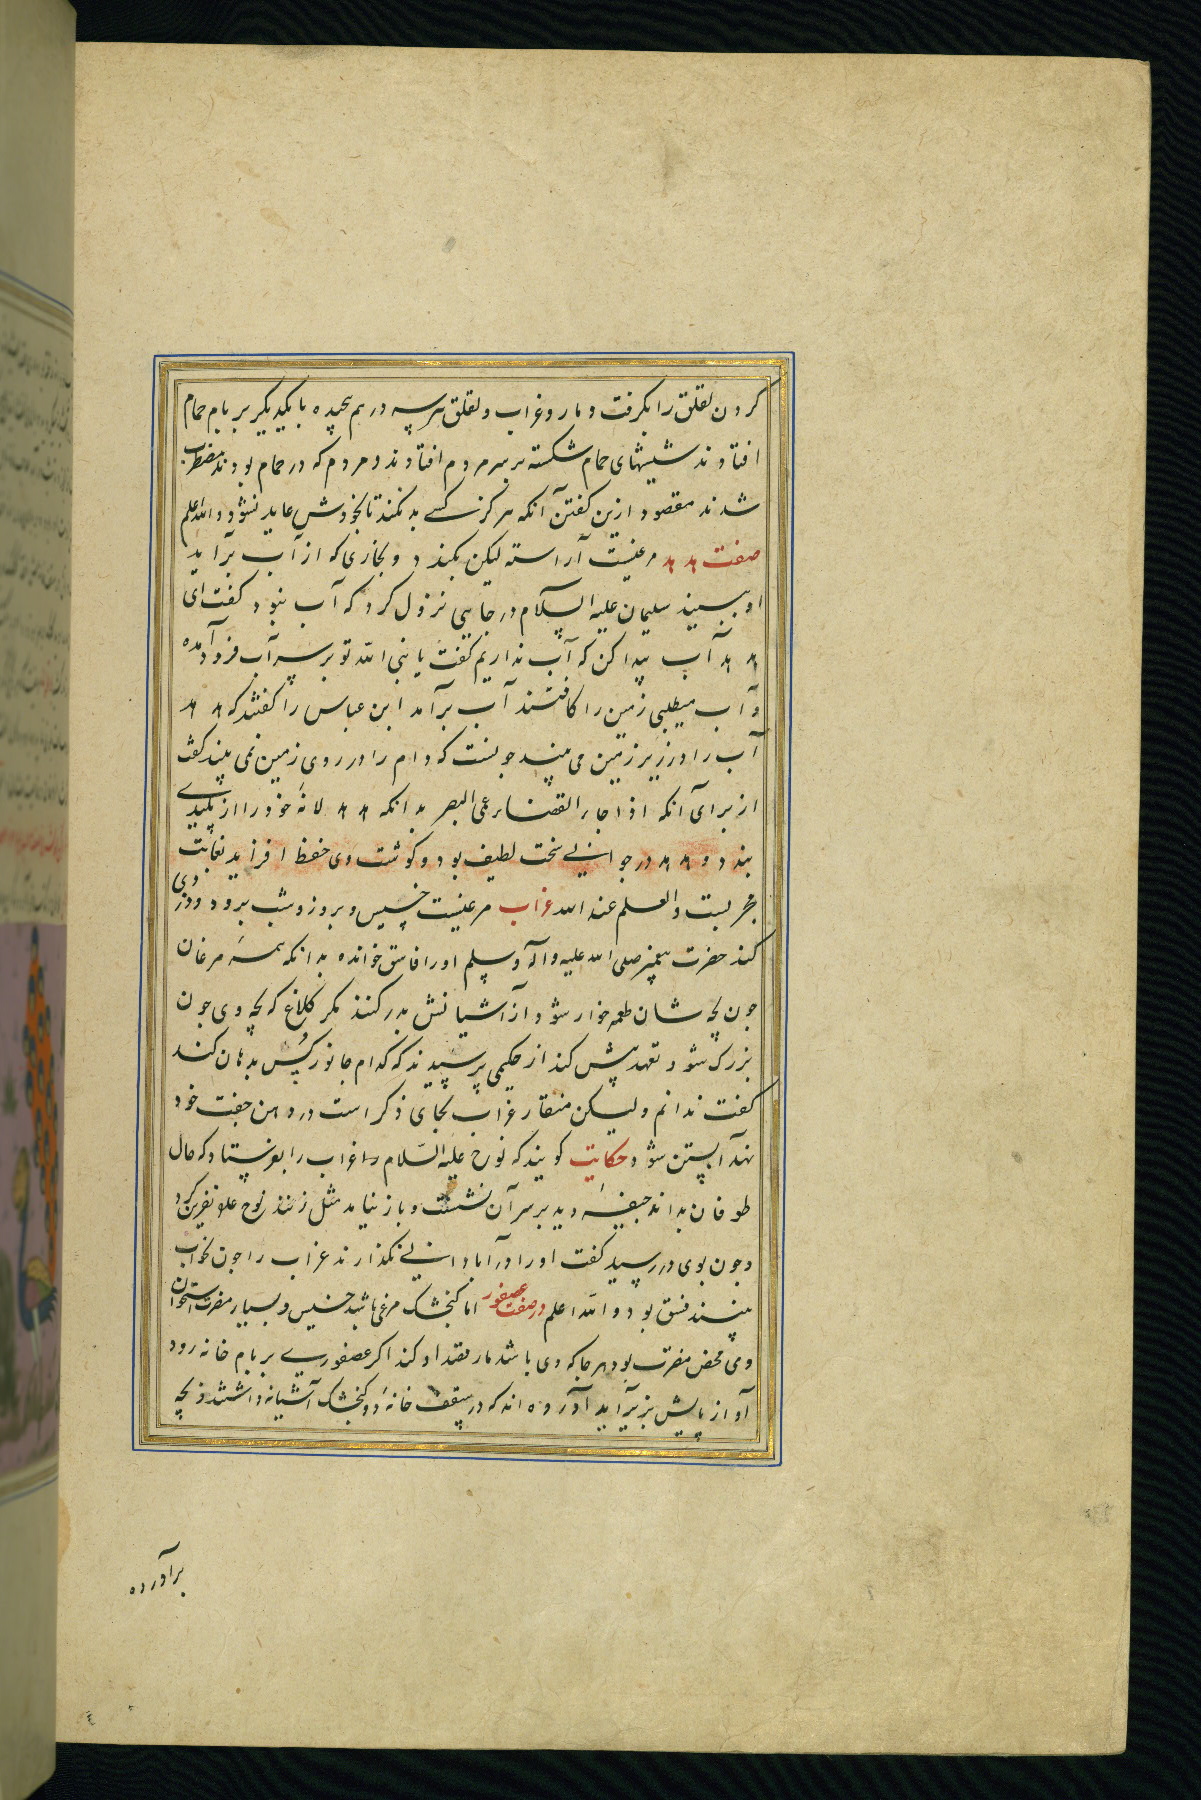 کردن لقلق را بکرفت و مار و غراب و لقلق هر سه در هم پیچیده با یکدیکر بر بام حمام
افتادند شیشهای حمام شکسته بر سر مردم افتادند و مردم که در حمام بودند مضطرب
شدند مقصود ازین کفتن آنکه هرکز کسی بد نکند تا بخودش عاید نشود والله اعلم
صفت هدهد مرغیست آراسته لیکن بکندد و بخاری که از آب برآید
او ببیند سلیمان علیه السلام در جایی نزول کرد که آب نبود کفت ای
هدهد آب پیدا کن که آب نداریم کفت یا نبی الله تو بر سر آب فرود آمده
و آب میطلبی زمین را کافتند آب برآمد ابن عباس را کفتند که هدهد
آب را در زیر زمین می بیند جونست که دام را در روی زمین نمی بیند کفت
از برای آنکه اذا جاء القضاء عمی البصر بدانکه هدهد لانه خود را از پلیدی
بندد و هدهد در جوانی سخت لطیف بود و کوشت وی حفظ افزاید بغایت
مجربست والعلم عند الله غراب مرغیست خسیس و بروز و شب برود و دزدی
کند حضرت پیغمبر صلی الله علیه و آله وسلم او را فاسق خوانده بدانکه همه مرغان
جون بچه شان طعمه خوار شود از آشیانش بدر کنند مکر کلاغ که بچه وی جون
بزرک شود تعهدش کند از حکیمی پرسیدند که کدام جانور کس بدهان کند
کفت ندانم ولیکن منقار غراب بجای ذکر است در دهن جفت خود
نهد آبستن شود حکایت کویند که نوح علیه السلام غراب را بفرستاد که حال
طوفان بداند جیفه دید بر سر آن نشست و باز نیامد مثل زنند نوح علیه نفرین کرد
و جون بوی در رسید کفت او را در آبادانی نکذارند غراب را جون بخواب
بینند فسق بود والله اعلم در صفت عصفور اما کنجشک مرغی باشد خسیس و بسیار مضرت استخوان
وی محض مضرت بود هر جا که وی باشد مار قصد او کند اکر عصفوری بر بام خانه رود
آواز پایش بزیر آید آورده اند که در سقف خانه دو کنجشک آشیانه داشتند و بچه
برآورده